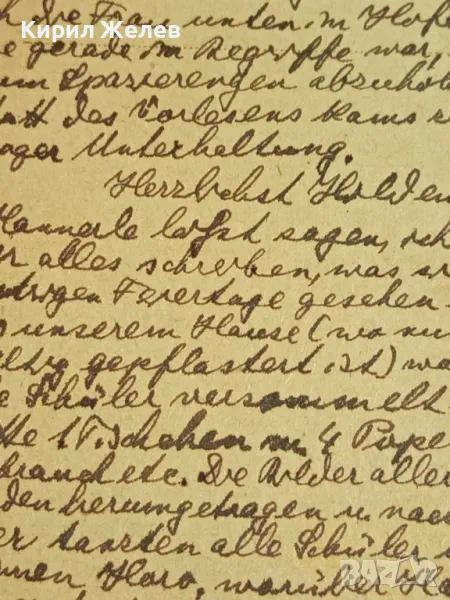 Кирил Желев
ch die Frau unten im Hofe
e gerade im Begriffe war,
um Spazierengen abzuhol
tatt des Vorlesens kams z
ager Unterhaltung.
Herzlichst Holden
Hannerle läßt sagen, ich
r alles schreiben, was w
ntigen Feiertage gesehen
unserem Hause (wo nur
gepflastert ist) wa
e Schüler versammelt
tte 1 Tischchen m. 4 Pope
brand etc. Die Bilder aller
den herumgetragen u. nach
er tanzten alle Schüler
Horo, worüber Ha
BAZAR